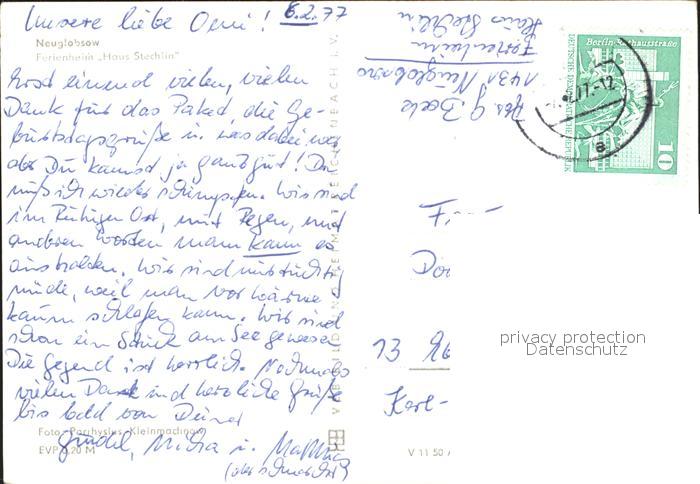 Unsere liebe Omi! 6.2.77
Neuglobsow
Ferienheim „Haus Stechlin"
erst einmal vielen, vielen
Dank für das Paket, die Ge-
burtstagsgrüße u. was dabei war,
Du kannst ja ganz gut! Du
mußt wieder schimpfen. Wir sind
im Ort, mit Regen, und
anderen Worten man kann es
aushalten. Wir sind
müde, weil man vor Wärme
kaum schlafen kann. Wir sind
schon ein Stück am See gewesen
Die Gegend ist herrlich. Nochmals
vielen Dank und herzliche Grüße
bis bald von Deiner
Foto: Parchyslus, Kleinmachnow
u.
EVP 0,20 M
VEB BILD UND HEIMAT REICHENBACH I. V.
V 11 50
Abs. G.
1431 Neuglobsow
Ferienheim
Haus Stechlin
Berlin, Rathausstraße
DEUTSCHE DEMOKRATISCHE REPUBLIK
10
77-12
a
F
Do
13
Karl-
privacy protection
Datenschutz